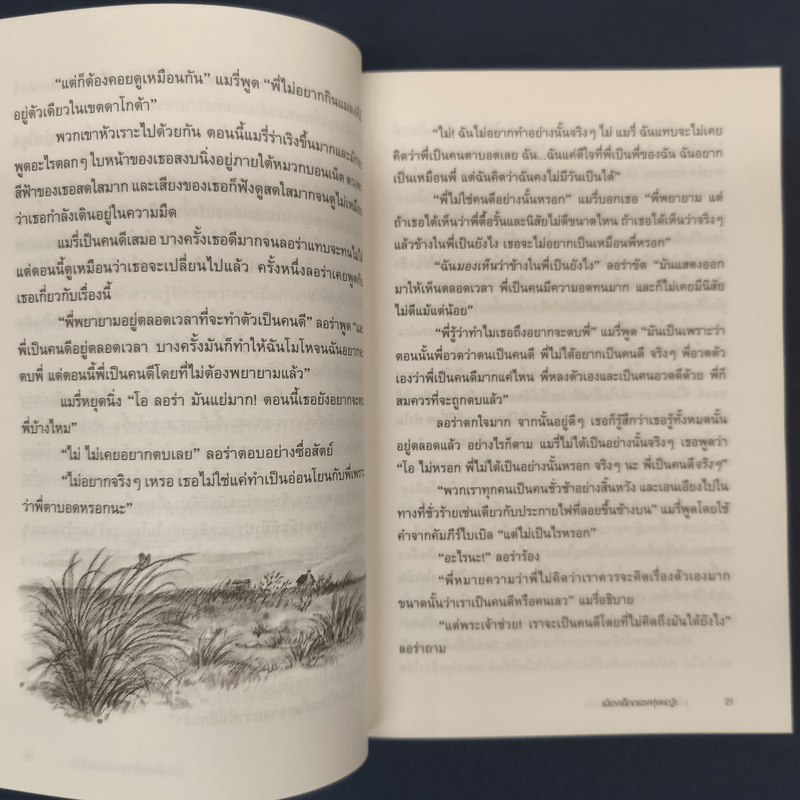 “แต่ก็ต้องคอยดูเหมือนกัน” แมรี่พูด “พี่ไม่อยากกินแมลงที่
อยู่ตัวเดียวในเขตดาโกต้า”
พวกเขาหัวเราะไปด้วยกัน ตอนนี้แมรี่ร่าเริงขึ้นมากและมัก
พูดอะไรตลกๆ ใบหน้าของเธอสงบนิ่งอยู่ภายใต้หมวกบอนเน็ต ดวงตา
สีฟ้าของเธอสดใสมาก และเสียงของเธอก็ฟังดูสดใสมากจนดูไม่เหมือน
ว่าเธอกำลังเดินอยู่ในความมืด
แมรี่เป็นคนดีเสมอ บางครั้งเธอดีมากจนลอร่าแทบจะทนไม่ได้
แต่ตอนนี้ดูเหมือนว่าเธอจะเปลี่ยนไปแล้ว ครั้งหนึ่งลอร่าเคยพูดกับ
เธอเกี่ยวกับเรื่องนี้
“พี่พยายามอยู่ตลอดเวลาที่จะทำตัวเป็นคนดี” ลอร่าพูด “และ
พี่เป็นคนดีอยู่ตลอดเวลา บางครั้งมันก็ทำให้ฉันโมโหจนฉันอยากจะ
ตบพี่ แต่ตอนนี้พี่เป็นคนดีโดยที่ไม่ต้องพยายามแล้ว”
แมรี่หยุดนิ่ง “โอ ลอร่า มันแย่มาก! ตอนนี้เธอยังอยากจะตบ
พี่บ้างไหม”
“ไม่ ไม่เคยอยากตบเลย” ลอร่าตอบอย่างซื่อสัตย์
“ไม่อยากจริงๆ เหรอ เธอไม่ใช่แค่ทำเป็นอ่อนโยนกับพี่เพราะ
ว่าพี่ตาบอดหรอกนะ”
“ไม่! ฉันไม่อยากทำอย่างนั้นจริงๆ ไม่ แมรี่ ฉันแทบจะไม่เคย
คิดว่าพี่เป็นคนตาบอดเลย ฉัน...ฉันแค่ดีใจที่พี่เป็นพี่ของฉัน ฉันอยาก
เป็นเหมือนพี่ แต่ฉันคิดว่าฉันคงไม่มีวันเป็นได้”
“พี่ไม่ใช่คนดีอย่างนั้นหรอก” แมรี่บอกเธอ “พี่พยายาม แต่
ถ้าเธอได้เห็นว่าพี่ดื้อรั้นและนิสัยไม่ดีขนาดไหน ถ้าเธอได้เห็นว่าจริงๆ
แล้วข้างในพี่เป็นยังไง เธอจะไม่อยากเป็นเหมือนพี่หรอก”
“ฉันมองเห็นว่าข้างในพี่เป็นยังไง” ลอร่าขัด “มันแสดงออก
มาให้เห็นตลอดเวลา พี่เป็นคนมีความอดทนมาก และก็ไม่เคยมีนิสัย
ไม่ดีแม้แต่น้อย”
“พี่รู้ว่าทำไมเธอถึงอยากจะตบพี่” แมรี่พูด “มันเป็นเพราะว่า
ตอนนั้นพี่อวดว่าตนเป็นคนดี พี่ไม่ได้อยากเป็นคนดี จริงๆ พี่อวดตัว
เองว่าพี่เป็นคนดีมากแค่ไหน พี่หลงตัวเองและเป็นคนอวดดีด้วย พี่ก็
สมควรที่จะถูกตบแล้ว”
ลอร่าตกใจมาก จากนั้นอยู่ดีๆ เธอก็รู้สึกว่าเธอรู้ทั้งหมดนั้น
อยู่ตลอดแล้ว อย่างไรก็ตาม แมรี่ไม่ได้เป็นอย่างนั้นจริงๆ เธอพูดว่า
“โอ ไม่หรอก พี่ไม่ได้เป็นอย่างนั้นหรอก จริงๆ นะ พี่เป็นคนดีจริงๆ”
“พวกเราทุกคนเป็นคนชั่วช้าอย่างสิ้นหวัง และเอนเอียงไปใน
ทางที่ชั่วร้ายเช่นเดียวกับประกายไฟที่ลอยขึ้นข้างบน” แมรี่พูดโดยใช้
คำจากคัมภีร์ไบเบิล “แต่ไม่เป็นไรหรอก”
“อะไรนะ!” ลอร่าร้อง
“พี่หมายความว่าพี่ไม่คิดว่าเราควรจะคิดเรื่องตัวเองมาก
ขนาดนั้นว่าเราเป็นคนดีหรือคนเลว” แมรี่อธิบาย
“แต่พระเจ้าช่วย! เราจะเป็นคนดีโดยที่ไม่คิดถึงมันได้ยังไง”
ลอร่าถาม
เมืองเล็กกลางทุ่งหญ้า 21